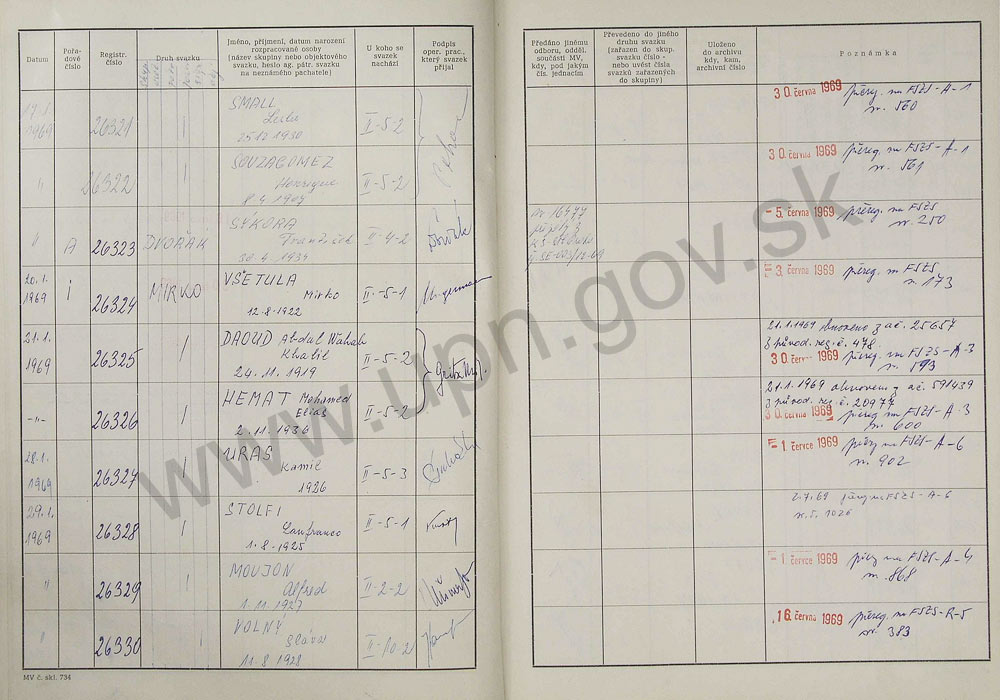 Datum
Pořa-
dové
číslo
Registr.
číslo
Druh svazku
Jméno, příjmení, datum narození
rozpracované osoby
(název skupiny nebo objektového
svazku, heslo ag. pátr. svazku
na neznámého pachatele)
U koho se
svazek
nachází
Podpis
oper. prac.,
který svazek
přijal
Předáno jinému
odboru, odděl.
součásti MV,
kdy, pod jakým
čís. jednacím
Převedeno do jiného
druhu svazku
(zařazen do skup.
svazku číslo -
nebo uvést čísla
svazků zařazených
do skupiny)
Uloženo
do archivu
kdy, kam,
archivní číslo
Poznámka
17.1.
1969
26321
SMALL
25.12.1930
II-5-2
30. června 1969 přereg. na FSZS-A-1
nr. 560
"
26322
SOUZAGOMEZ
Henrique
II-5-2
30. června 1969 přereg. na FSZS-A-1
nr. 561
"
A
26323
DVOŘÁK
SÝKORA
František
II-4-2
- 5. června 1969 přereg. na FSZS
nr. 250
20.1.
1969
26324
MIRKO
VŠETULA
Mirko
12.8.1922
II-5-1
- 3. června 1969 přereg. na FSZS
nr. 173
21.1.
1969
26325
DAOUD Abdul Wahab
Khalil
24.11.1919
II-5-2
21.1.1969 obnoveno z ač. 25657
z původ. reg. č. 478.
30. června 1969 přereg. na FSZS-A-3
nr. 593
-"-
26326
HEMAT Mohamed
2.11.1936
II-5-2
21.1.1969 obnoveno z ač. 591439
z původ. reg. č. 20977
30. června 1969 přereg. na FSZS-A-3
nr. 600
28.1.
1969
26327
URAS
Kamil
1926
II-5-3
- 1. července 1969 přereg. na FSZS-A-6
nr. 902
29.1.
1969
26328
STOLFI
Lanfranco
1.8.1925
II-5-1
2.7.69 přereg. na FSZS-A-6
1026
"
26329
MOUJON
Alfred
1.11.1927
II-2-2
- 1. července 1969 přereg. na FSZS-A-4
nr. 868
"
26330
VOLNÝ
Sláva
11.8.1928
II-10-2
16. června 1969 přereg. na FSZS-R-5
nr. 383
MV č. skl. 734
www.upn.gov.sk